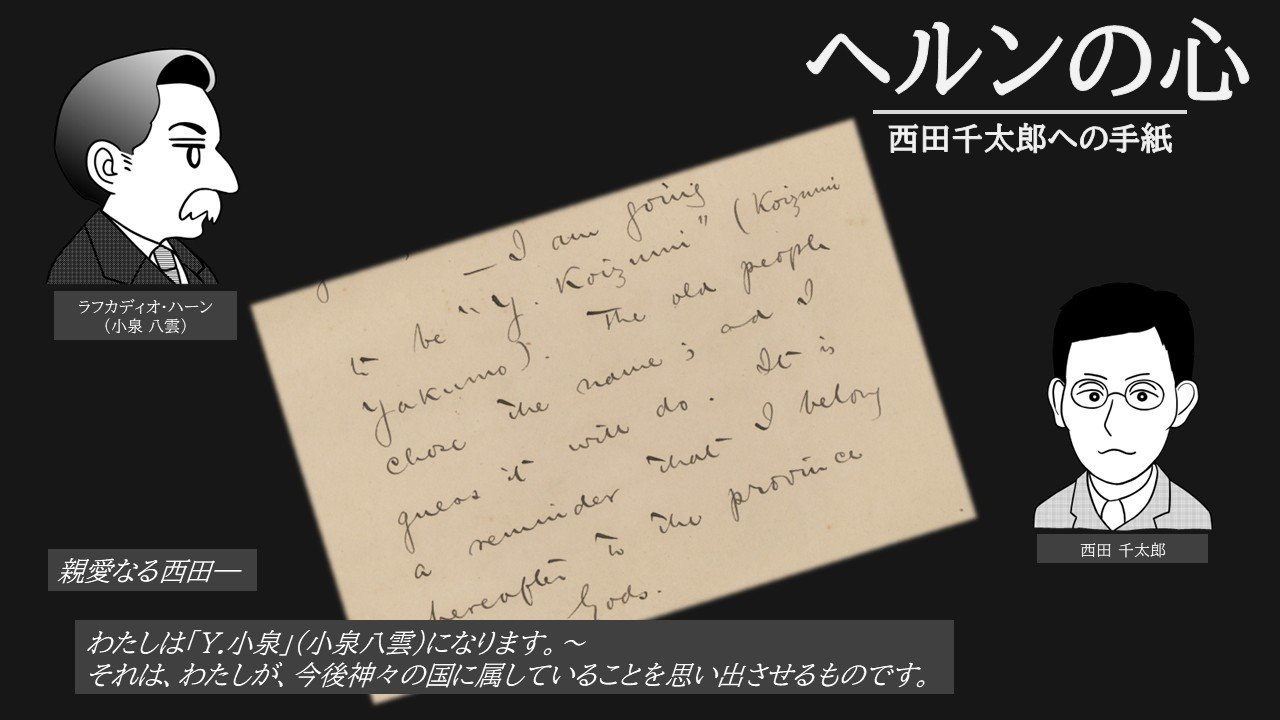 ヘルンの心
西田千太郎への手紙
ラフカディオ・ハーン
（小泉 八雲）
— I am going
to be "Y. Koizumi" (Koizumi
Yakumo). The old people
chose the name; and I
guess it will do. It is
a reminder that I belong
hereafter to the province
Gods.
西田 千太郎
親愛なる西田―
わたしは「Y.小泉」（小泉八雲）になります。～
それは、わたしが、今後神々の国に属していることを思い出させるものです。